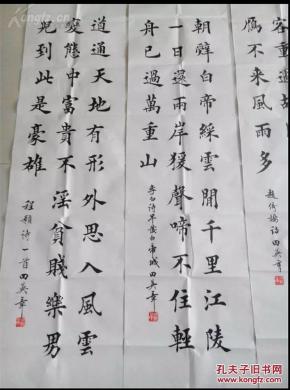 容重過
鴈不來風雨多
田英章
朝辭白帝綵雲間千里江陵
一日還兩岸猿聲啼不住輕
舟已過萬重山
李白詩早發白帝城 田英章
道通天地有形外思入風雲
變態中富貴不淫貧賤樂男
兒到此是豪雄
程顥詩一首田英章